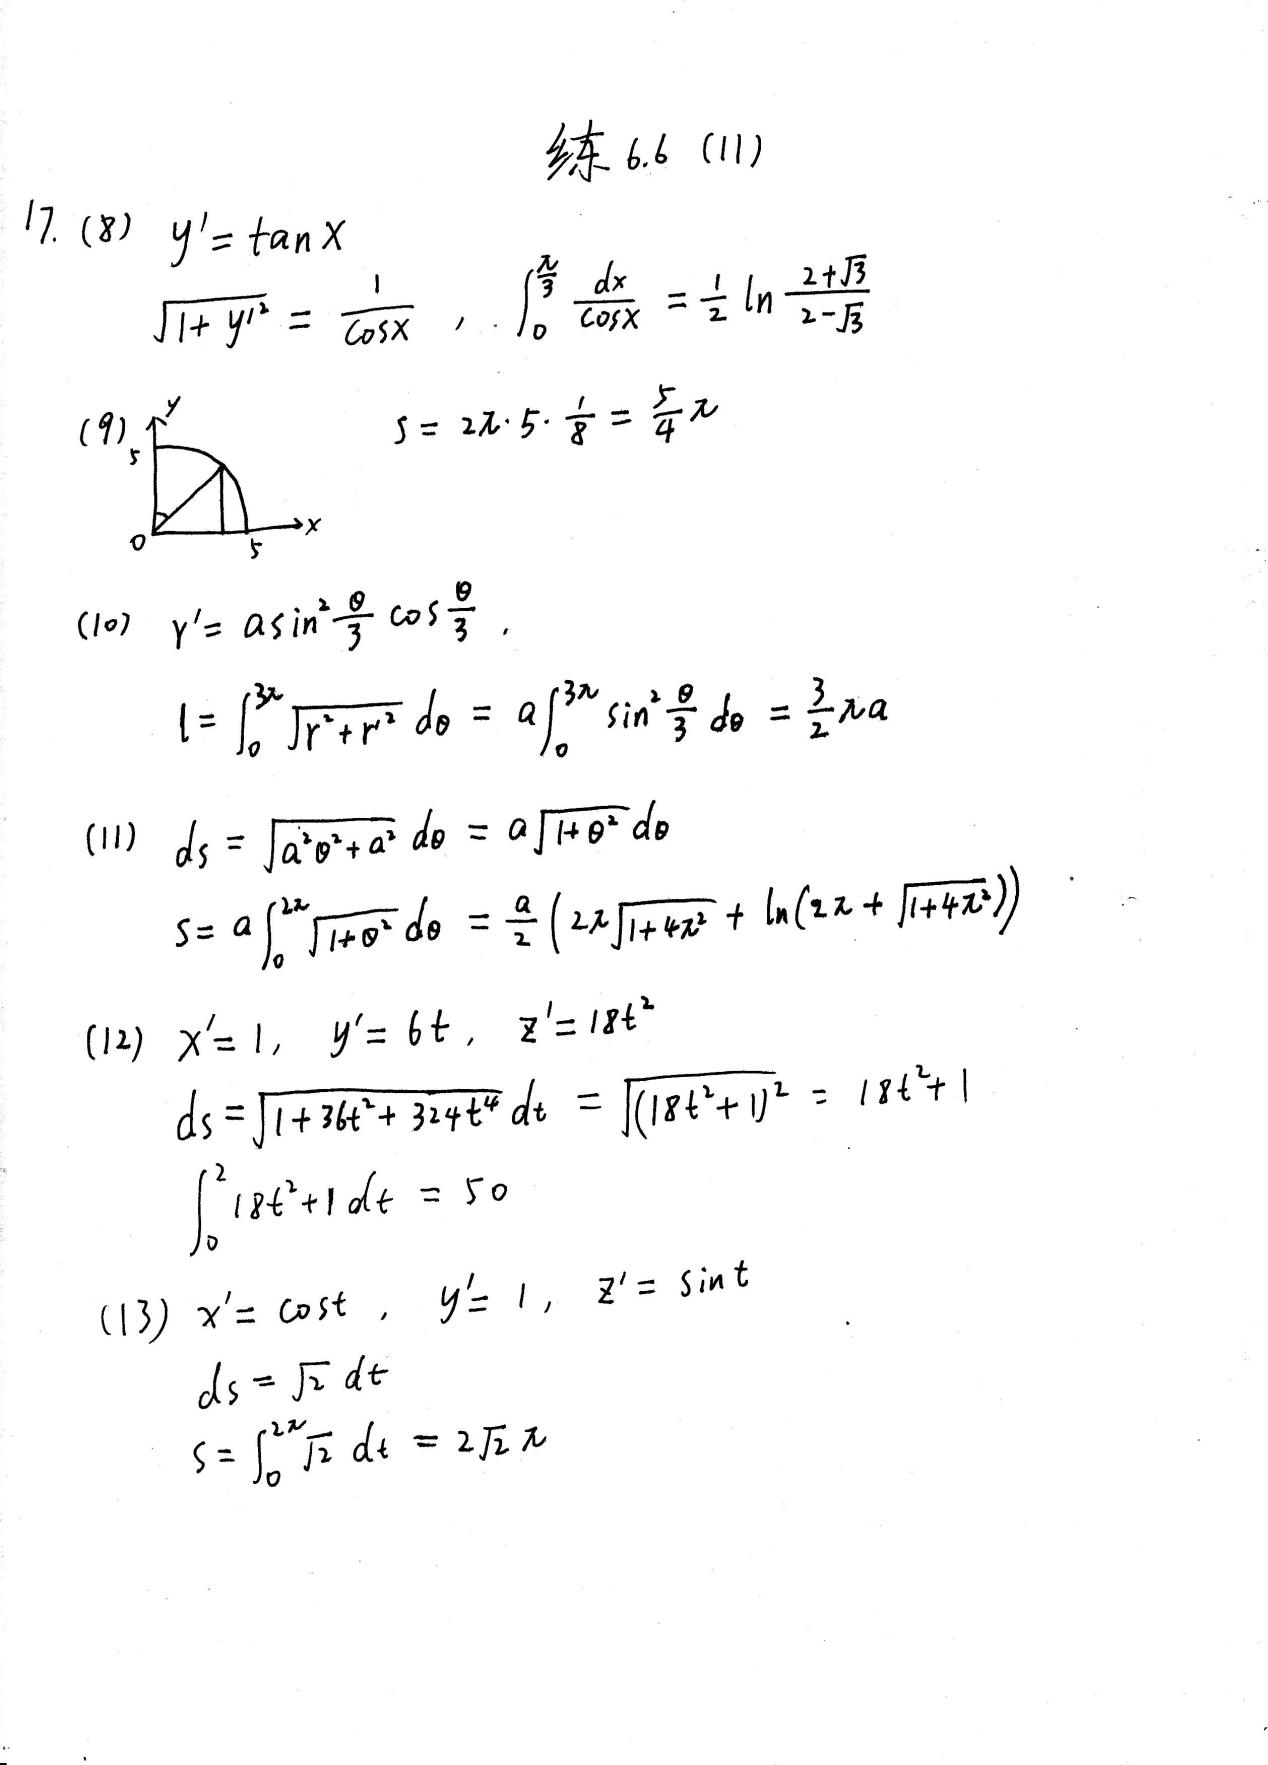 练 6.6 (11)
17. (8) y' = tan x
√(1+y'²) = 1/cosx , ∫₀^(π/3) dx/cosx = 1/2 ln (2+√3)/(2-√3)
(9) y 5 O 5 x s = 2π·5·1/8 = 5/4 π
(10) r' = a sin² θ/3 cos θ/3 .
l = ∫₀^(3π) √(r²+r'²) dθ = a∫₀^(3π) sin² θ/3 dθ = 3/2 πa
(11) ds = √(a²θ²+a²) dθ = a√(1+θ²) dθ
s = a∫₀^(2π) √(1+θ²) dθ = a/2 (2π√(1+4π²) + ln(2π + √(1+4π²)))
(12) x' = 1, y' = 6t, z' = 18t²
ds = √(1+36t²+324t⁴) dt = √((18t²+1)²) = 18t²+1
∫₀² 18t²+1 dt = 50
(13) x' = cost , y' = 1, z' = sint
ds = √2 dt
s = ∫₀^(2π) √2 dt = 2√2 π